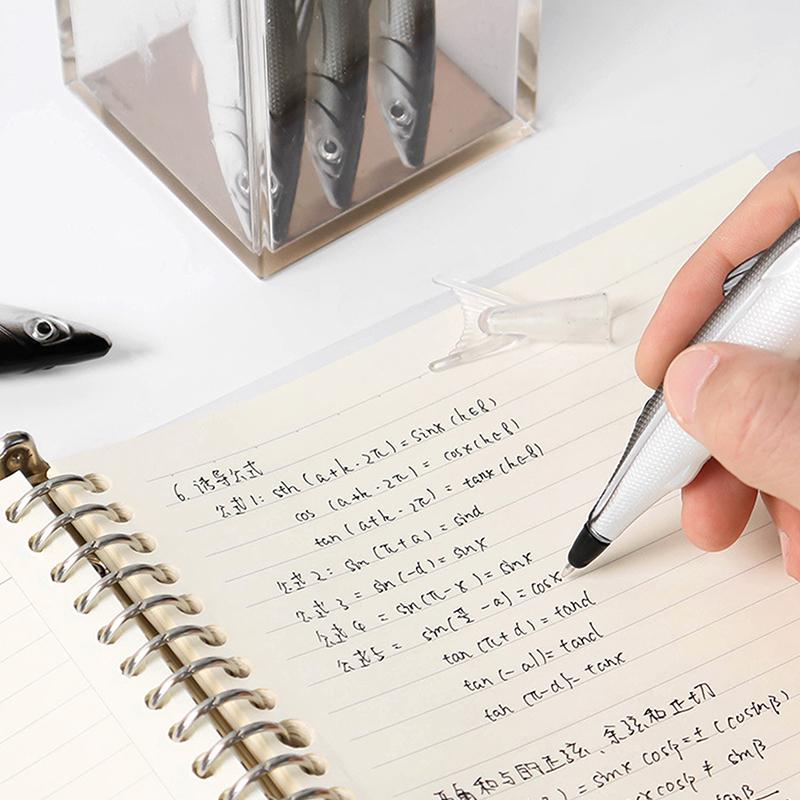 6. 诱导公式
公式1: sth (a+k·2π) = sinx (k∈8)
cos (a+k·2π) = cosx (k∈8)
tan (a+k·2π) = tanx (k∈8)
公式2: sin (π+a) = sind
公式3 = sin(-d) = sinx
公式4 = sin(π-x) = sinx
公式5 = sin(π/2 - a) = cosx
tan (π+d) = tand
tan (-a)) = tand
tan (π-d) = tanx
两角和与的正弦、余弦和正切
) = sinx cosβ = ± (cosinβ)
xcosβ ≠ sinβ